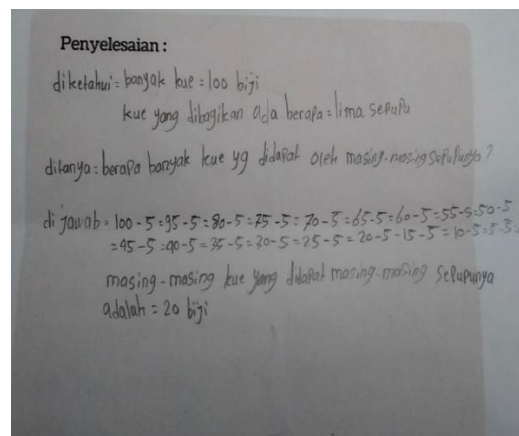 Penyelesaian :
diketahui = banyak kue = 100 biji
kue yang dibagikan ada berapa = lima sepupu
ditanya = berapa banyak kue yg didapat oleh masing-masing sepupunya ?
di jawab = 100 - 5 = 95 - 5 = 80 - 5 = 75 - 5 = 70 - 5 = 65 - 5 = 60 - 5 = 55 - 5 = 50 - 5
= 45 - 5 = 40 - 5 = 35 - 5 = 30 - 5 = 25 - 5 = 20 - 5 - 15 - 5 = 10 - 5 = 5 - 5
masing - masing kue yang didapat masing-masing sepupunya
adalah = 20 biji